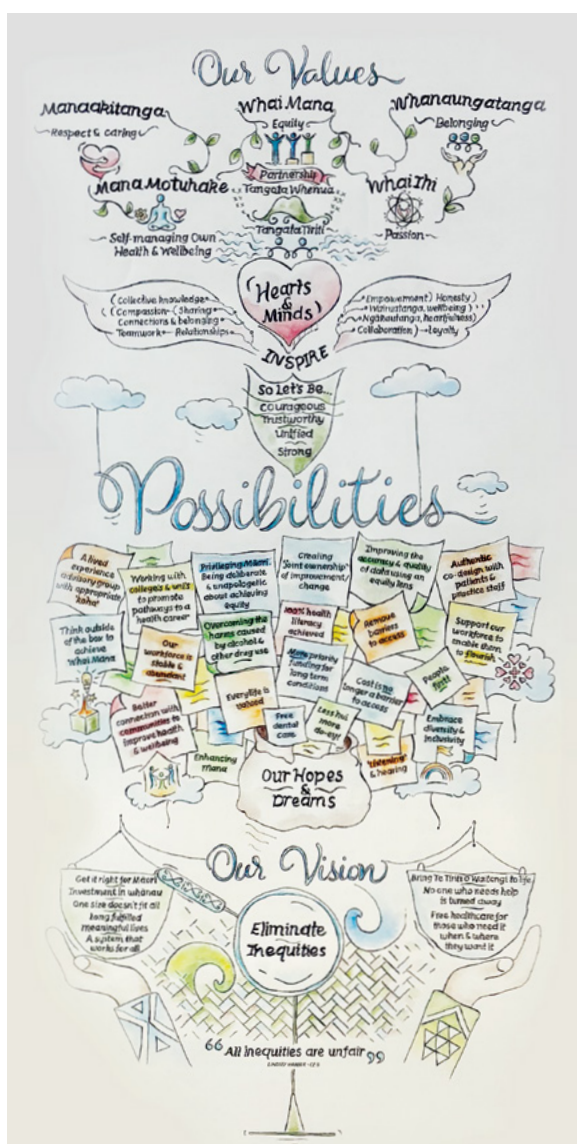 Our Values
Manaakitanga
Respect & caring
Whai Mana
Equity
Whanaungatanga
Belonging
Mana Motuhake
Self-managing Own
Health & Wellbeing
Partnership
Tangata Whenua
Tangata Tiriti
Whai Ihi
Passion
(Hearts
&
Minds)
(Collective knowledge
(Compassion (Sharing
Connections & belonging
Teamwork Relationships
Empowerment) Honesty)
Wairuatanga, wellbeing)
Ngākautanga, heartfulness)
Collaboration) Loyalty
INSPIRE
So Let's Be...
Courageous
Trustworthy
Unified
Strong
Possibilities
A lived
experience
advisory group
with appropriate
'kaha'
Working with
colleges & uni's
to promote
pathways to a
health career
Privileging Māori
Being deliberate
& unapologetic
about achieving
equity
Creating
'joint ownership'
of improvement/
change
Improving the
accuracy & quality
of data using an
equity lens
Authentic
co-design with
patients &
practice staff
Think outside
of the box to
achieve
Whai Mana
Our
workforce is
stable &
abundant
Overcoming the
harms caused
by alcohol &
other drug use
100% health
literacy
achieved
Remove
barriers
to access
Support our
workforce to
enable them
to flourish
More priority
funding for
long term
conditions
Cost is no
longer a barrier
to access
People
first!
Better
connection with
communities to
improve health
& wellbeing
Every life is
valued
Free
dental
care
Less hui
more
do-ey!
Embrace
diversity &
inclusivity
Enhancing
mana
'Listening'
& hearing
Our Hopes
&
Dreams
Our Vision
Get it right for Māori
Investment in whānau
One size doesn't fit all
Long fulfilled
meaningful lives
A system that
works for all
Eliminate
Inequities
Bring Te Tiriti o Waitangi to life
No one who needs help
is turned away
Free healthcare for
those who need it
when & where
they want it
"All inequities are unfair"